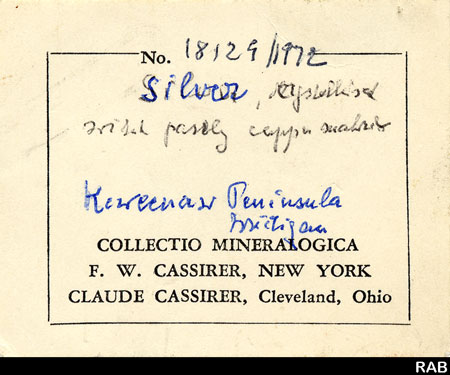 No. 18129/1972
Silver, crystallized
with partly copper matrix
Keweenaw Peninsula
Michigan
COLLECTIO MINERALOGICA
F. W. CASSIRER, NEW YORK
CLAUDE CASSIRER, Cleveland, Ohio
RAB